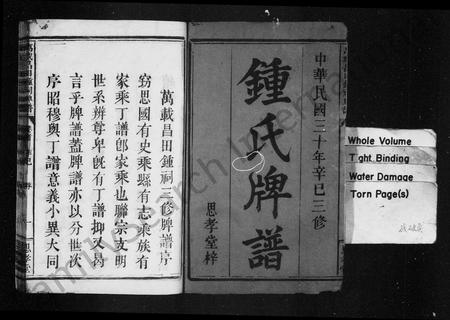 中華民國三十年辛巳三修
鍾氏牌譜
思孝堂梓
萬載昌田鍾祠三修牌譜序
窃思國有史乘縣有志乘族有
家乘丁譜卽家乘也聯宗支明
世系辨尊卑旣有丁譜抑又曷
言乎牌譜蓋牌譜亦以分世次
序昭穆與丁譜意義小異大同
Whole Volume
Tight Binding
Water Damage
Torn Page(s)